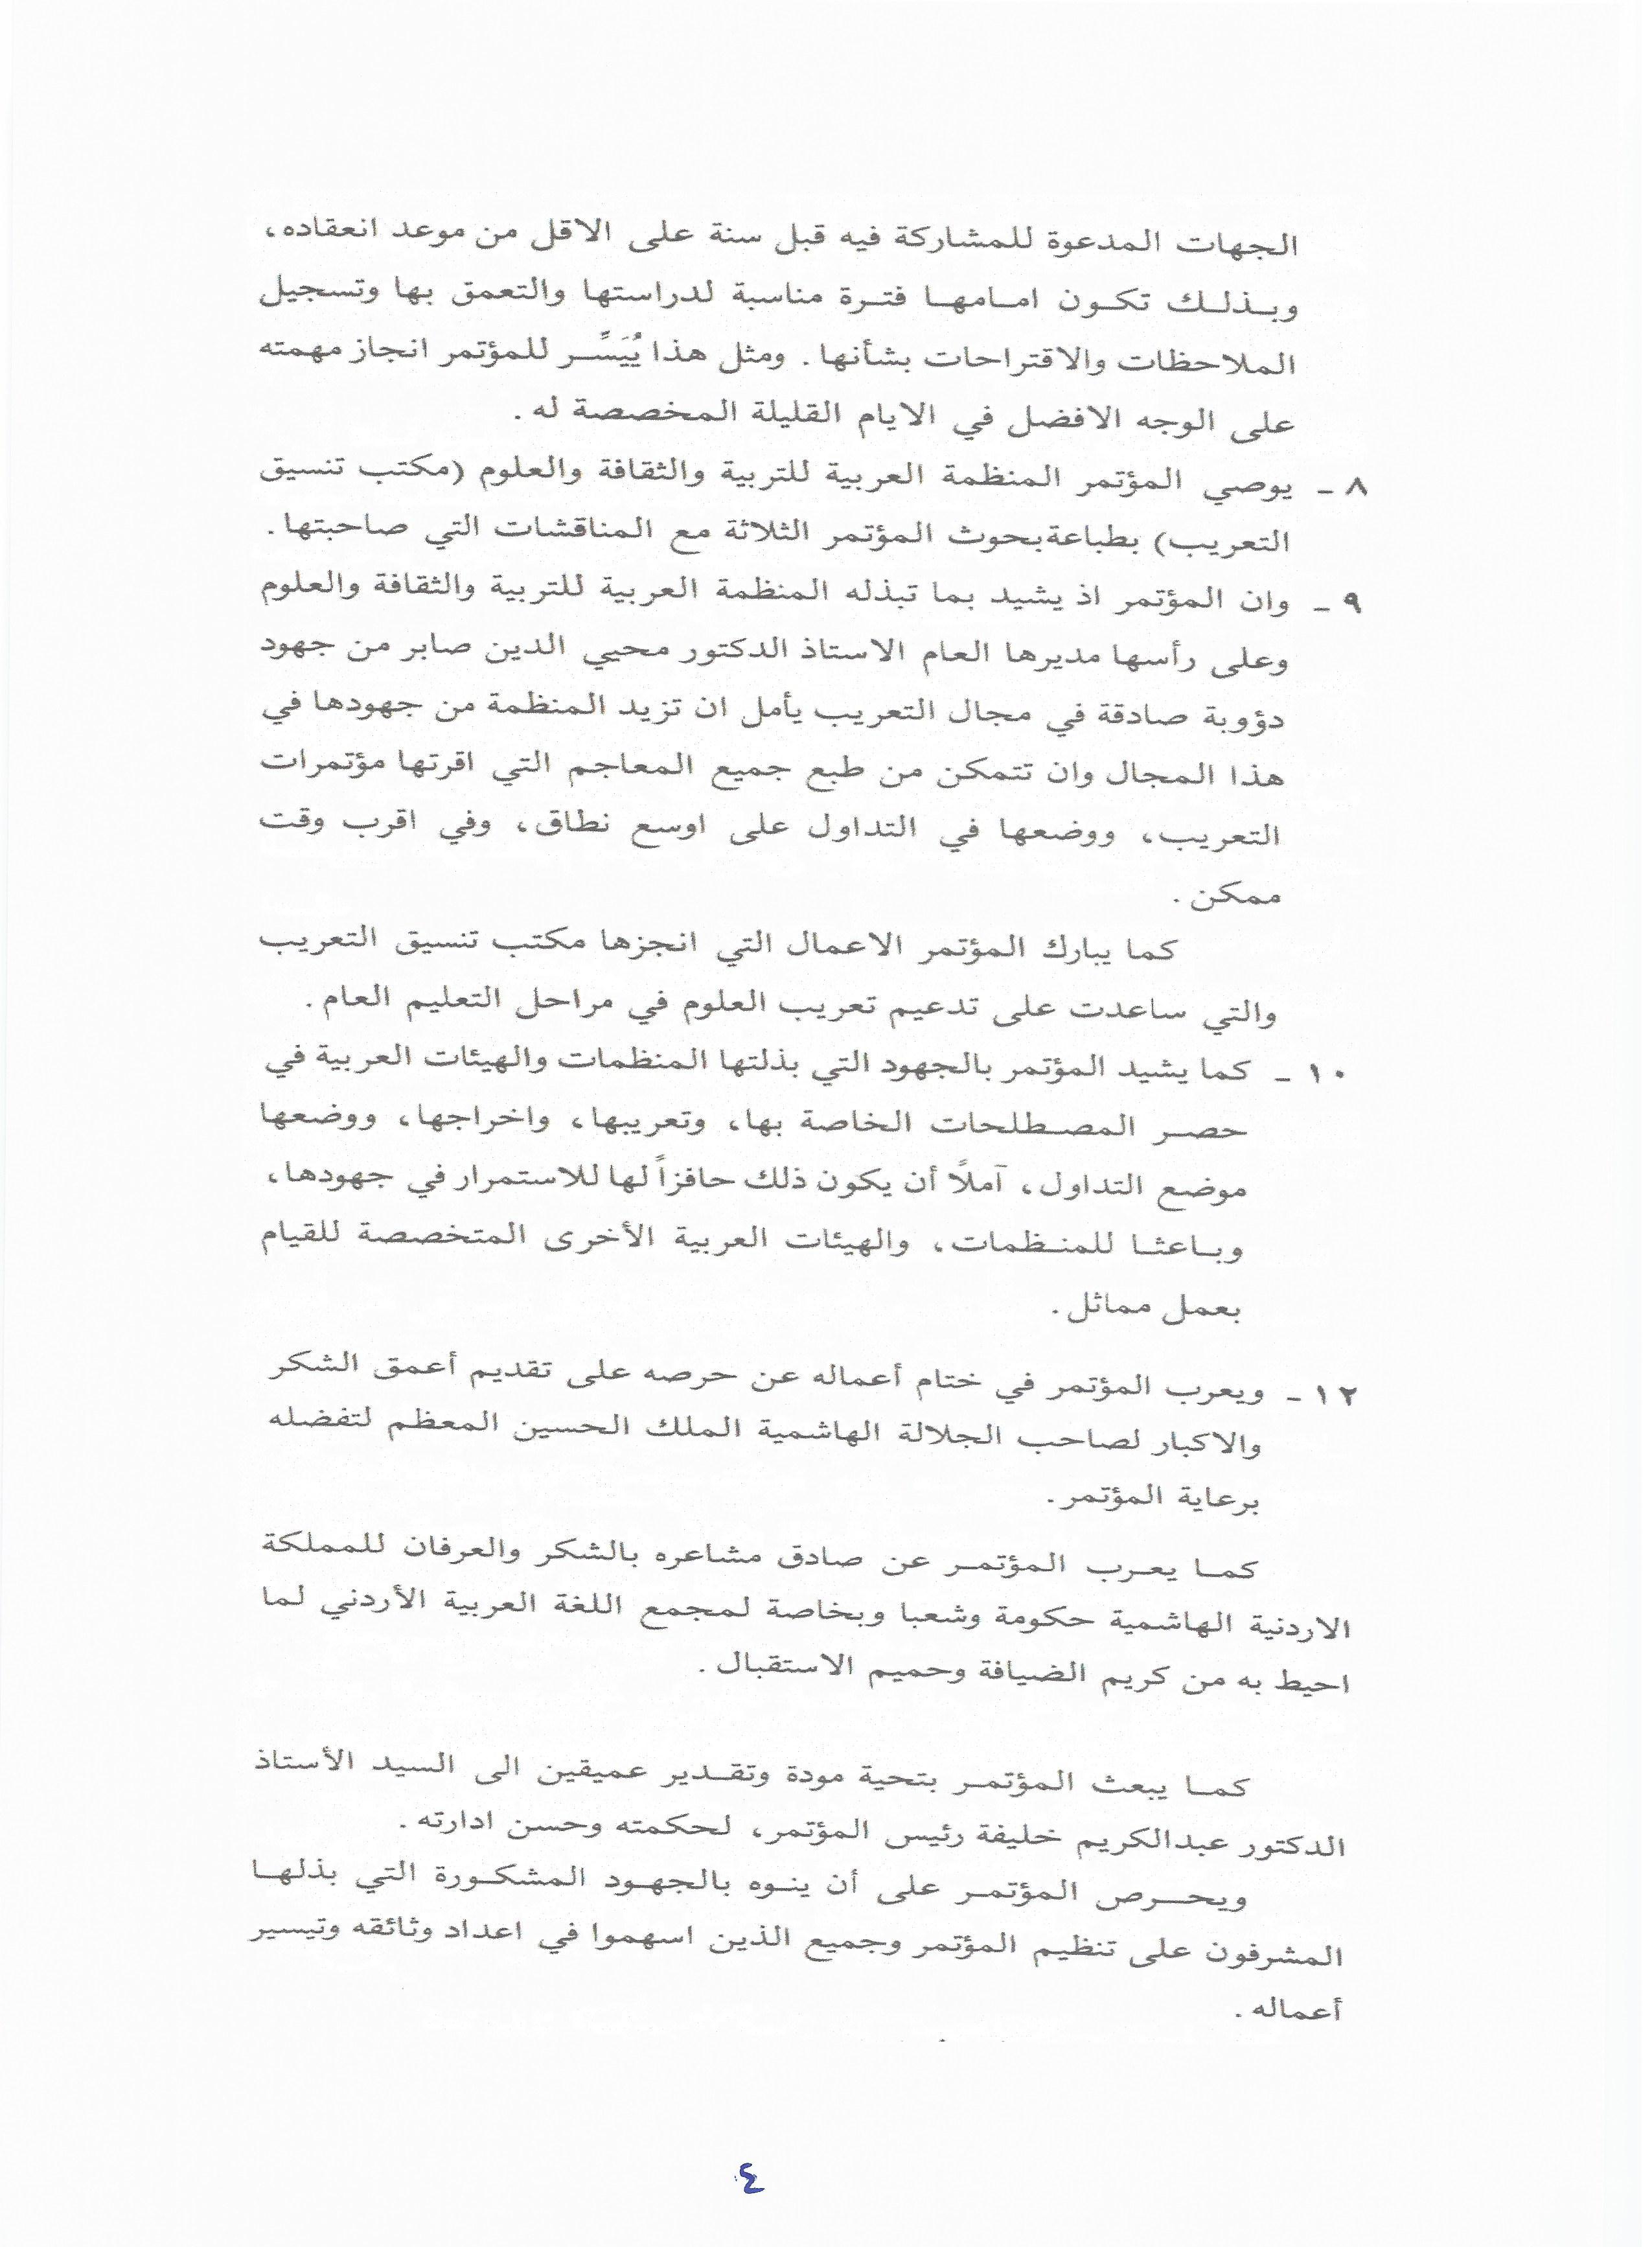 الجهات المدعوة للمشاركة فيه قبل سنة على الاقل من موعد انعقاده،
وبذلك تكون امامها فترة مناسبة لدراستها والتعمق بها وتسجيل
الملاحظات والاقتراحات بشأنها. ومثل هذا يُيَسِّر للمؤتمر انجاز مهمته
على الوجه الافضل في الايام القليلة المخصصة له.
٨ - يوصي المؤتمر المنظمة العربية للتربية والثقافة والعلوم (مكتب تنسيق
التعريب) بطباعة بحوث المؤتمر الثلاثة مع المناقشات التي صاحبتها.
٩ - وان المؤتمر اذ يشيد بما تبذله المنظمة العربية للتربية والثقافة والعلوم
وعلى رأسها مديرها العام الاستاذ الدكتور محيي الدين صابر من جهود
دؤوبة صادقة في مجال التعريب يأمل ان تزيد المنظمة من جهودها في
هذا المجال وان تتمكن من طبع جميع المعاجم التي اقرتها مؤتمرات
التعريب، ووضعها في التداول على اوسع نطاق، وفي اقرب وقت
ممكن.
كما يبارك المؤتمر الاعمال التي انجزها مكتب تنسيق التعريب
والتي ساعدت على تدعيم تعريب العلوم في مراحل التعليم العام.
١٠ - كما يشيد المؤتمر بالجهود التي بذلتها المنظمات والهيئات العربية في
حصر المصطلحات الخاصة بها، وتعريبها، واخراجها، ووضعها
موضع التداول، آملاً أن يكون ذلك حافزاً لها للاستمرار في جهودها،
وباعثا للمنظمات، والهيئات العربية الأخرى المتخصصة للقيام
بعمل مماثل.
١٢ - ويعرب المؤتمر في ختام أعماله عن حرصه على تقديم أعمق الشكر
والاكبار لصاحب الجلالة الهاشمية الملك الحسين المعظم لتفضله
برعاية المؤتمر.
كما يعرب المؤتمر عن صادق مشاعره بالشكر والعرفان للمملكة
الاردنية الهاشمية حكومة وشعبا وبخاصة لمجمع اللغة العربية الأردني لما
احيط به من كريم الضيافة وحميم الاستقبال.
كما يبعث المؤتمر بتحية مودة وتقدير عميقين الى السيد الأستاذ
الدكتور عبدالكريم خليفة رئيس المؤتمر، لحكمته وحسن ادارته.
ويحرص المؤتمر على أن ينوه بالجهود المشكورة التي بذلها
المشرفون على تنظيم المؤتمر وجميع الذين اسهموا في اعداد وثائقه وتيسير
أعماله.
٤